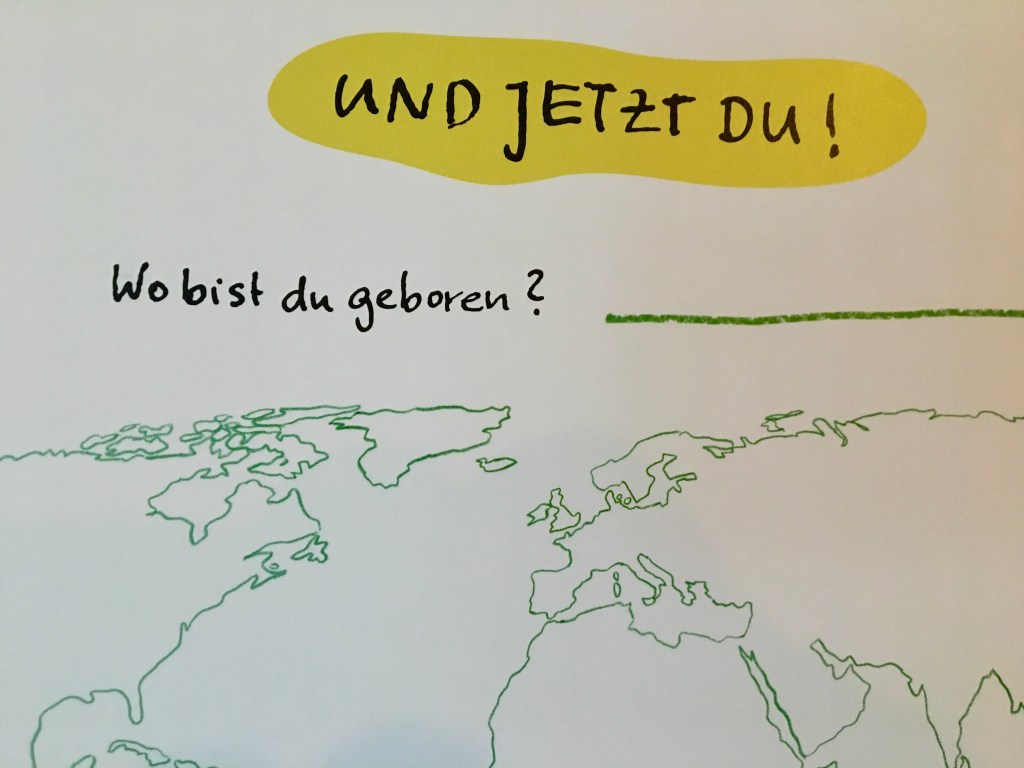 UND JETZT DU!
Wo bist du geboren?